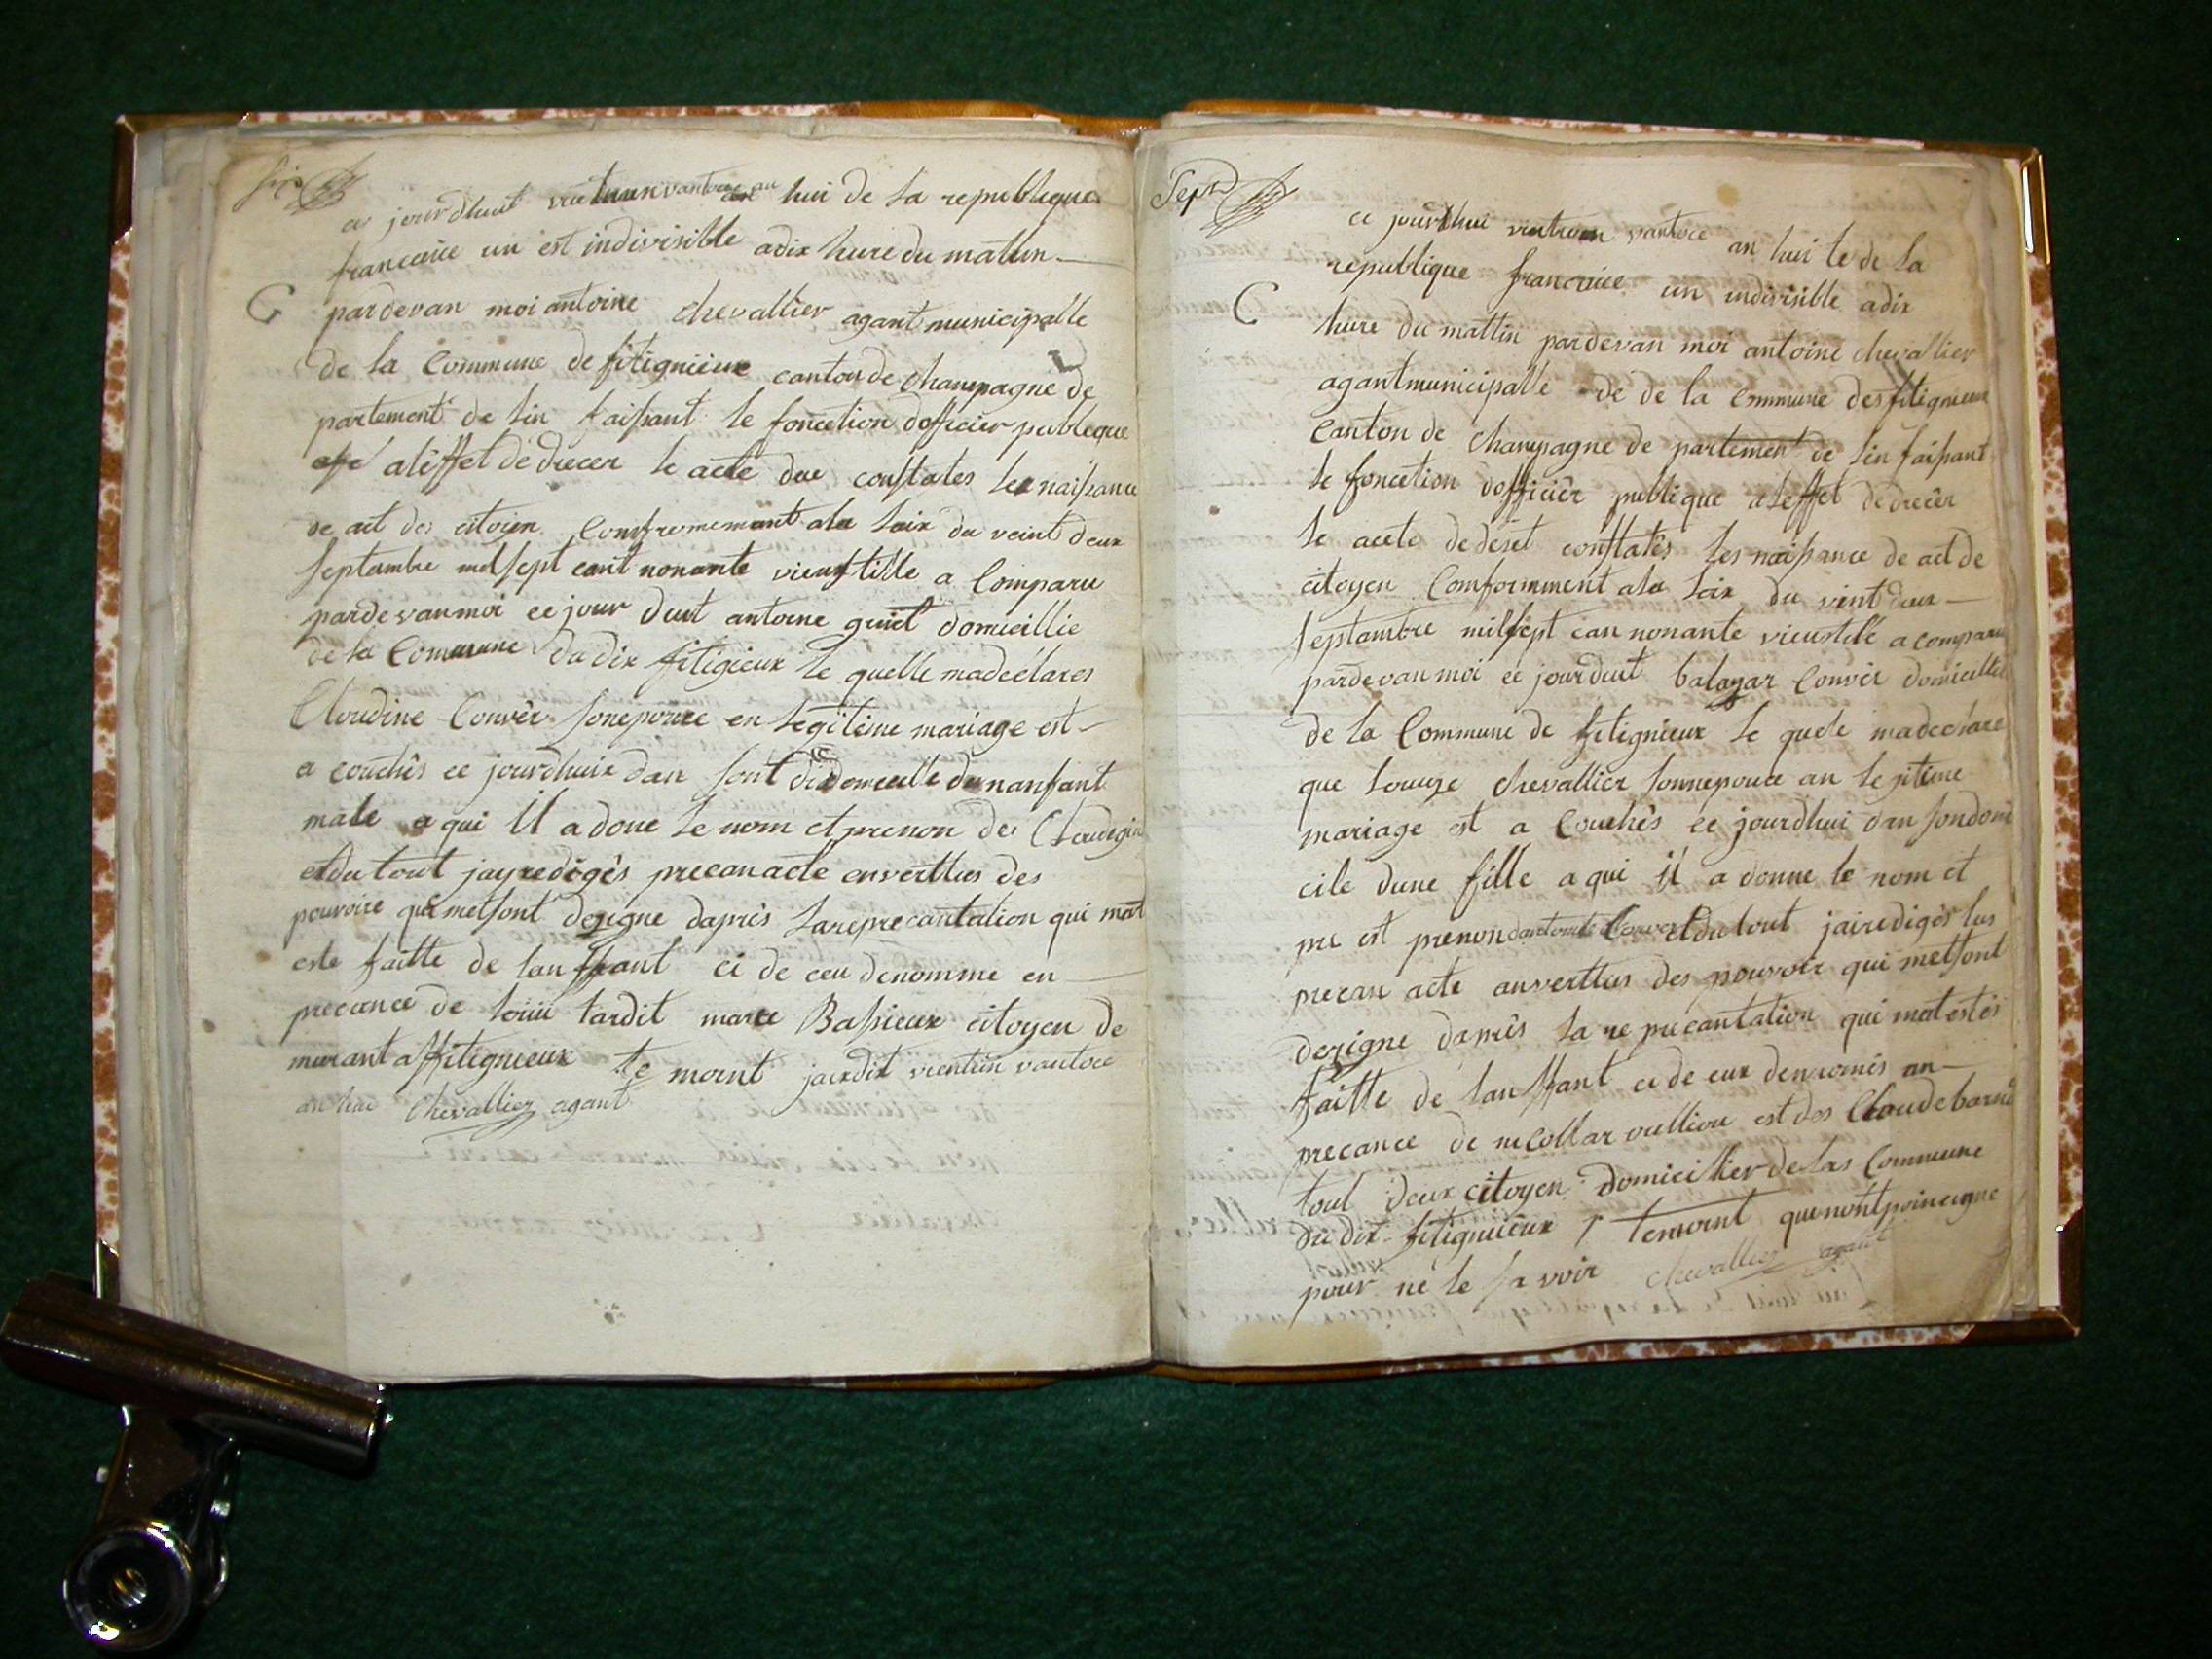 Six
ce jourdhuit vintunn vantoce an hui de la republique
francoice un est indivisible adix hure du mattin
C
pardevan moi antoine chevallier agant municipalle
de la Commune de fitignieux canton de champagne de
partement de lin faissant le foncetion dofficier publeque
aleffet de drecer le acte due constates les naissance
de act des citoien Confrormemant ala loix du veint deux
septambre milsept cant nonante vieustille a Comparu
pardevanmoi ce jour duit antoine guiet domicillie
de la Commune du dix fitigieux le quelle madeclares
Cloudine Convèr sonepouze en legitime mariage est
a couchés ce jourdhuix dan sont didomcille dunanfant
male a qui il a done le nom et prenon des
et du tout jayredigès precanacte enverttus des
pouvoire qui metsont dezigne daprès la reprecantation qui mat
este faitte de lanffant ci de ceu denomme en
precence de louii tardit marce Bassieux citoyen de
murant affitignieux te moint jaixdit vientun vantoce
an hui chevallier agant
Sept
ce jourdhui vintunn vantoce an hui te de la
republique francoice un indivisible adix
C
hure du mattin pardevan moi antoine chevallier
agantmunicipalle de de la Commune des fitignieux
Canton de champagne de partement de lin faissant
le foncetion dofficièr publique aleffet de drecèr
le acete dedeset constatès les naissance de act de
citoyen Comformment ala loix du vint deux
septambre milsept can nonante vieustile a comparu
pardevanmoi ce jourduit balazar Convèr domicillie
de la Commune de fitignieux le quele madeclare
que louize chevallier sonnepouce an lejitime
mariage est a Couchès ce jourdhui dan sondomi
cile dune fille a qui il a donne le nom et
pre est prenon et du tout jairedigès lus
precan acte anverttus des pouvoir qui metsont
dezigne daprès la re precantation qui matestés
faitte de lanffant ci de eux denomès an
precance de nicollar vulliou est des Claude
tout deux citoyen domicilier de las Commune
du dix fitignieux temoint quenontpoincigne
pour ne le sa voir chevallier agant